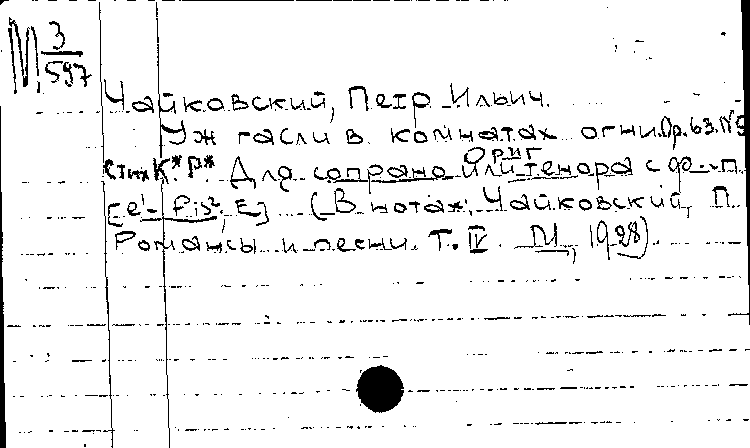 М 3/597
Чайковский, Петр Ильич.
Уж гасли в комнатах огни. Op. 63. №5
Стих К.*Р.* Для сопрано или тенора с ф.-п.
ориг
[e¹- fis², E] (В нотах: Чайковский, П.
Романсы и песни. Т. IV. М., 1928).